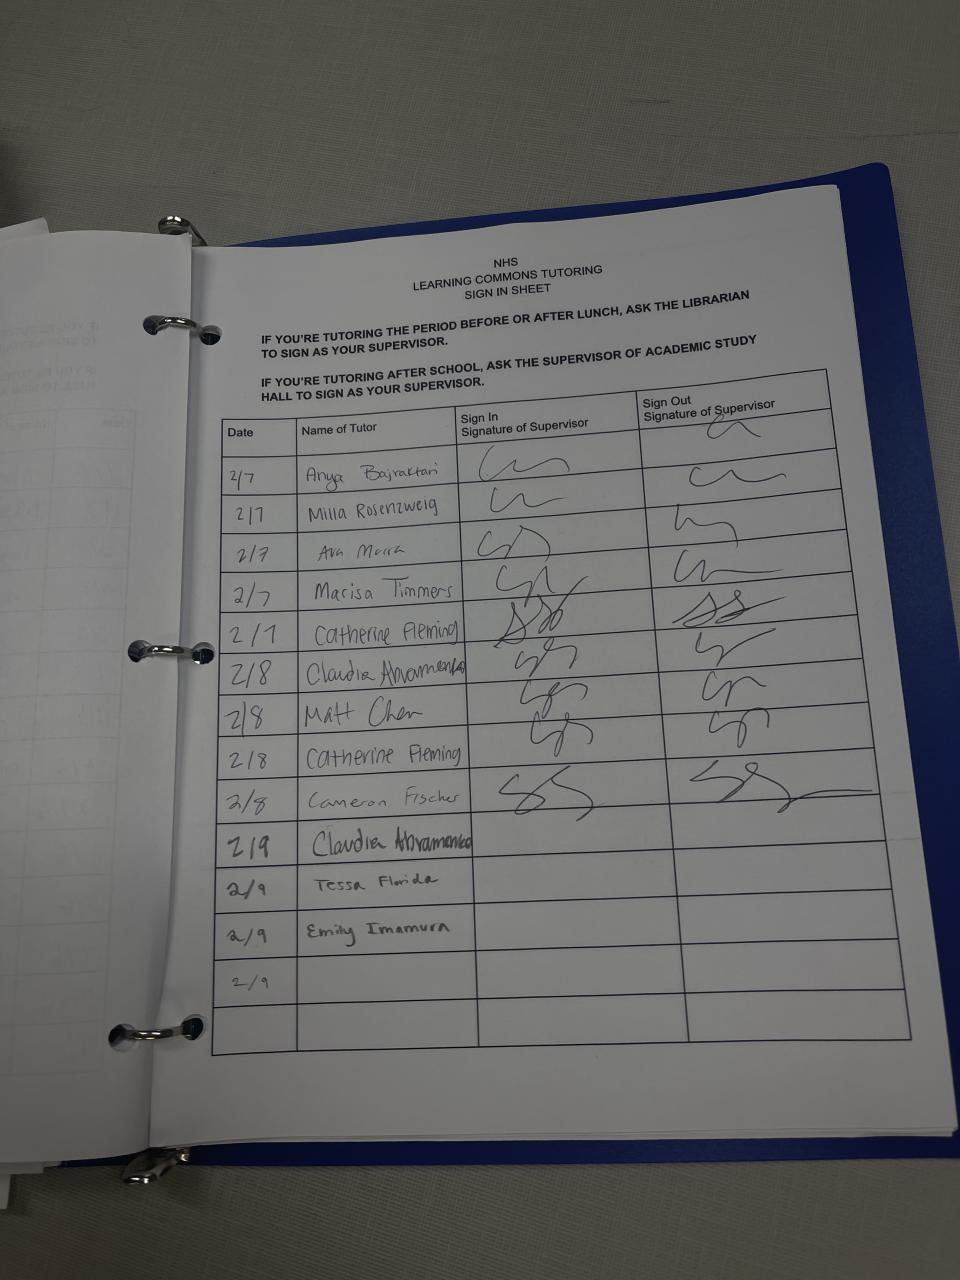 NHS
LEARNING COMMONS TUTORING
SIGN IN SHEET
IF YOU'RE TUTORING THE PERIOD BEFORE OR AFTER LUNCH, ASK THE LIBRARIAN
TO SIGN AS YOUR SUPERVISOR.
IF YOU'RE TUTORING AFTER SCHOOL, ASK THE SUPERVISOR OF ACADEMIC STUDY
HALL TO SIGN AS YOUR SUPERVISOR.
Date Name of Tutor Sign In Sign Out
Signature of Supervisor Signature of Supervisor
2/7 Anya Bajraktari
2/7 Milla Rosenzweig
2/7 Ava
2/7 Marisa Timmers
2/7 Catherine Fleming
2/8 Claudia Abramenko
2/8 Matt Chen
2/8 Catherine Fleming
2/8 Cameron Fischer
2/9 Claudia Abramenko
2/9 Tessa Florida
2/9 Emily Imamura
2/9